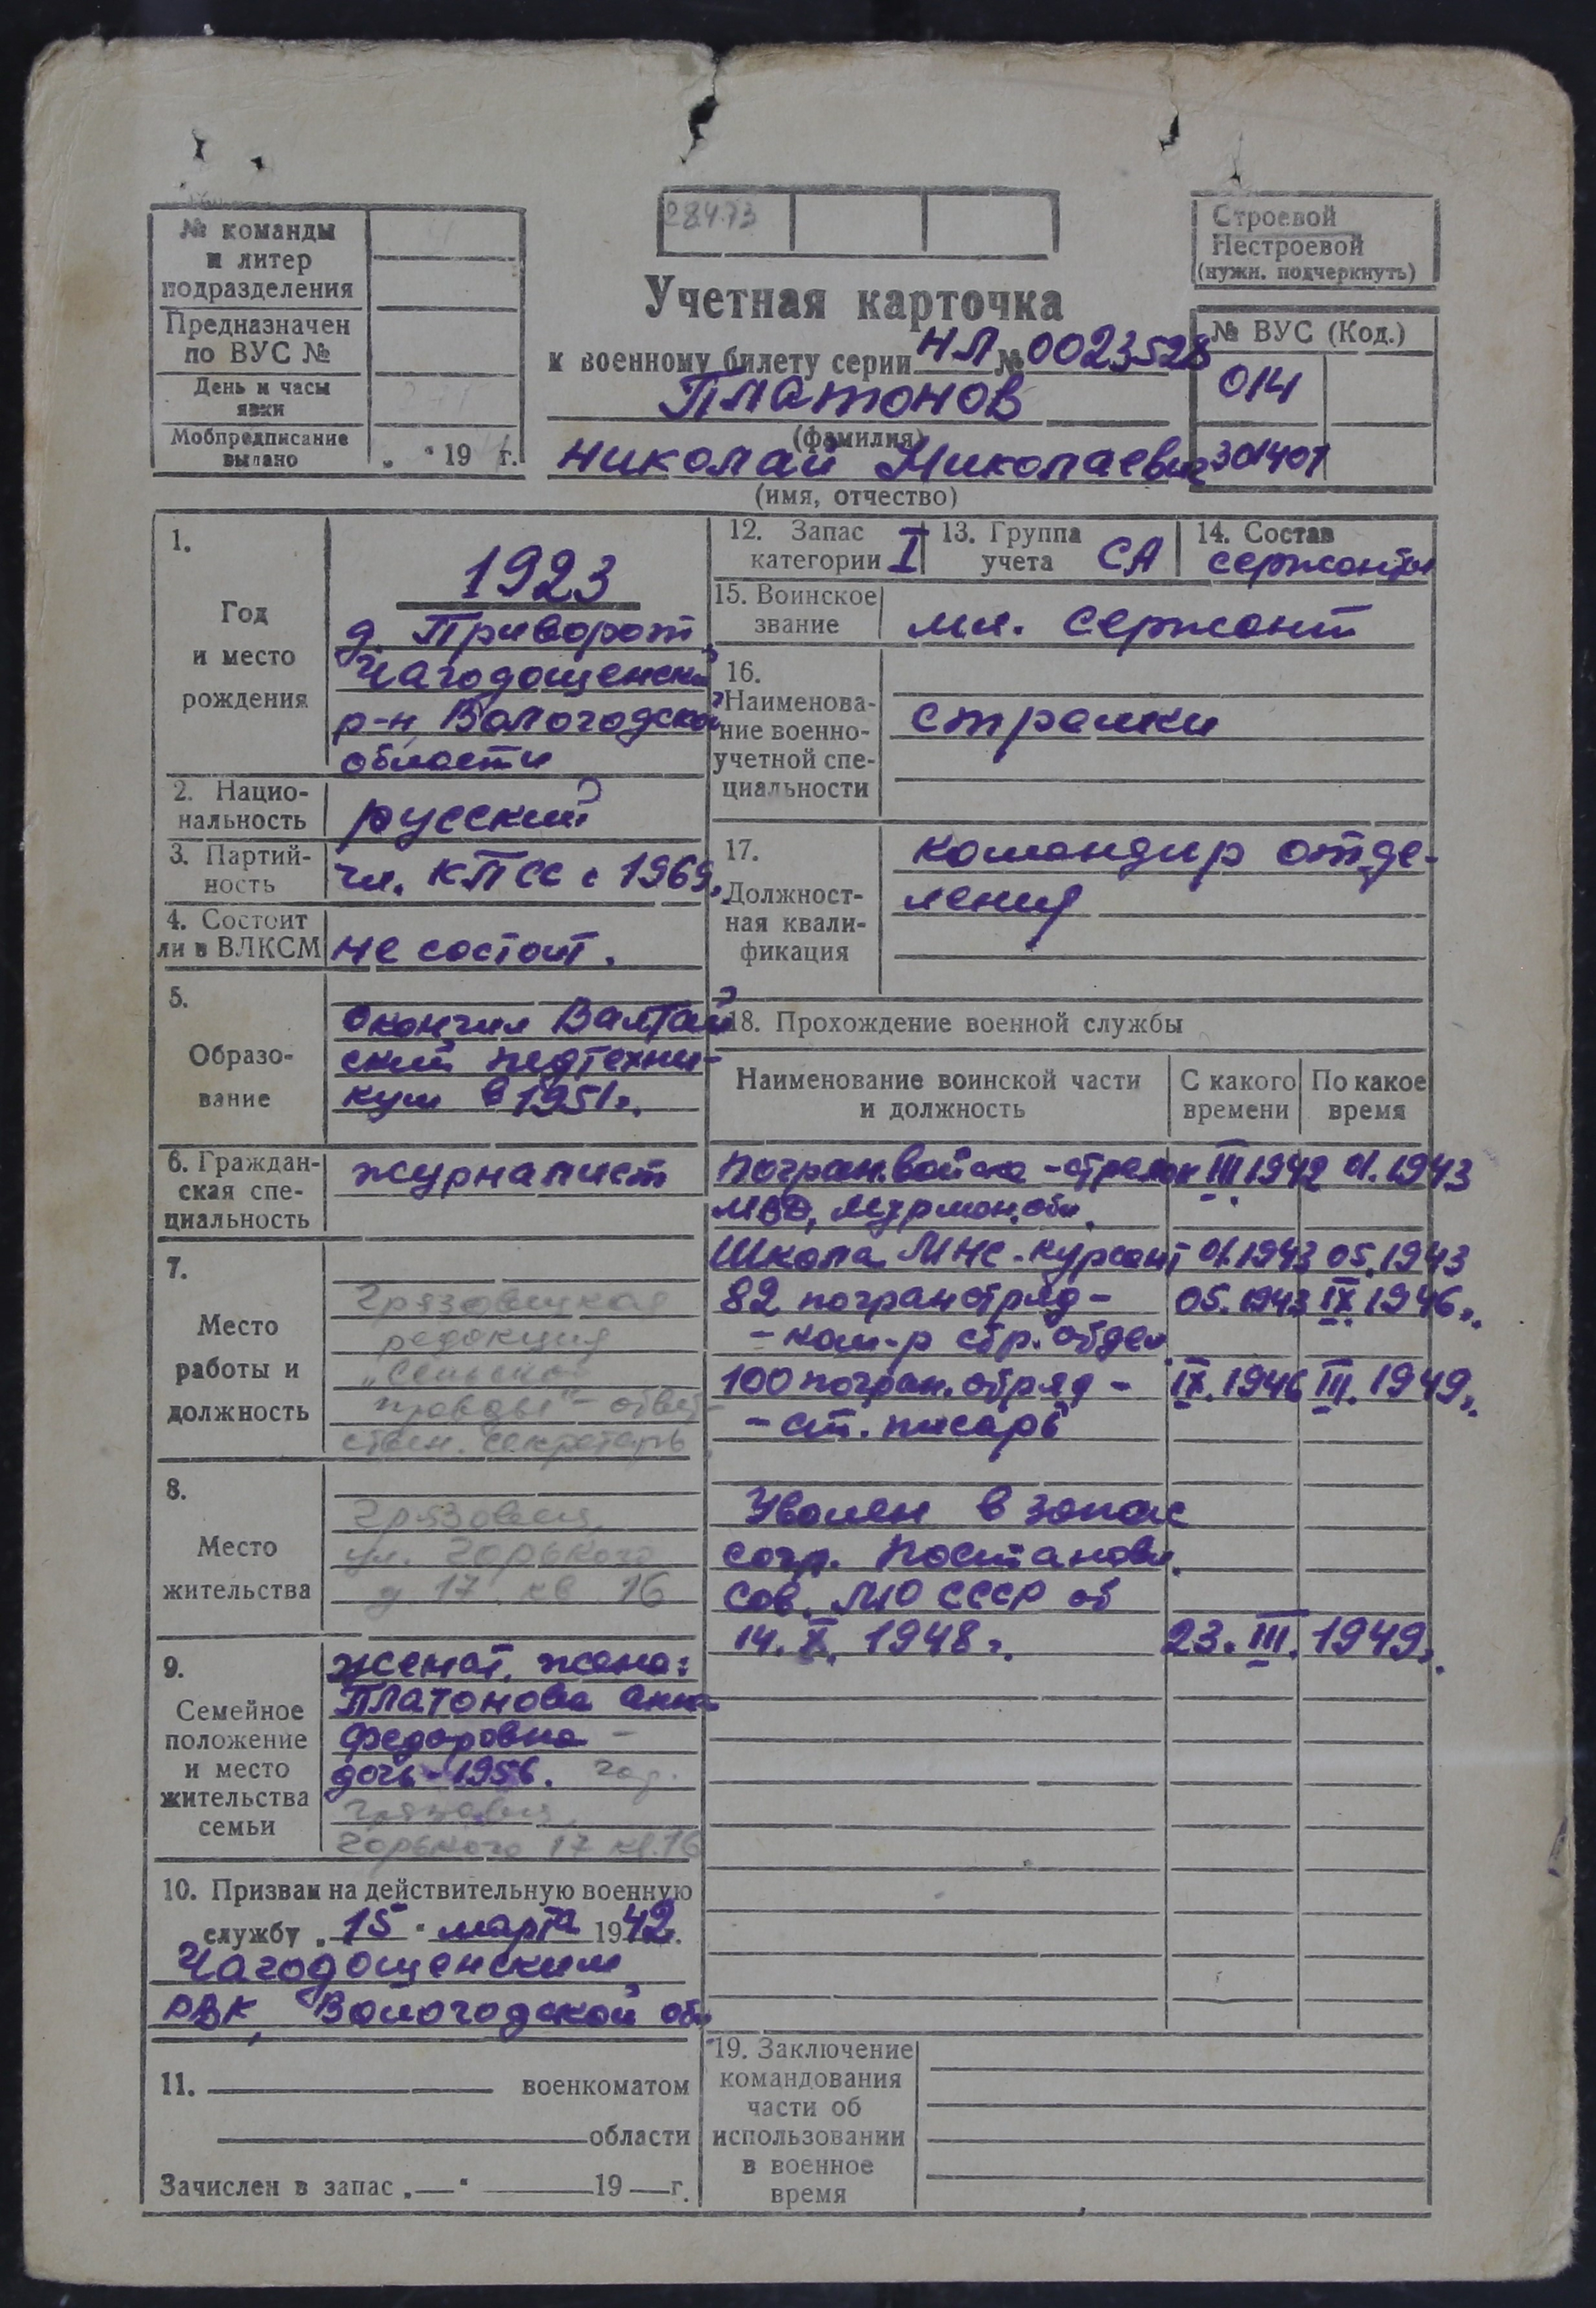 № команды
и литер
подразделения
Предназначен
по ВУС №
День и часы
явки
Мобпредписание
выдано
„ “ 19 г.
28473
Учетная карточка
к военному билету серии НЛ № 0023528
Платонов
(фамилия)
Николай Николаевич
(имя, отчество)
Строевой
Нестроевой
(нужн. подчеркнуть)
№ ВУС (Код.)
014
301401
1.
Год
и место
рождения
1923
д. Приворот
Чагодощенский
р-н, Вологодской
области
2. Нацио-
нальность
русский
3. Партий-
ность
чл. КПСС с 1969г.
4. Состоит
ли в ВЛКСМ
не состоит.
5.
Образо-
вание
Окончил Валтай
ский педтехни-
кум в 1951г.
6. Граждан-
ская спе-
циальность
журналист
7.
Место
работы и
должность
Грязовецкая
редакция
„Сельской
правды" - ответ-
ствен. секретарь
8.
Место
жительства
Грязовец,
ул. Горького
д. 17 кв 16
9.
Семейное
положение
и место
жительства
семьи
женат, жена:
Платонова Анна
Федоровна -
дочь - 1956. гор.
Грязовец,
Горького 17 кв.16
10. Призван на действительную военную
службу „15“ марта 1942г.
Чагодощенским
РВК, Вологодской обл
11. военкоматом
области
Зачислен в запас „ “ 19 г.
12. Запас
категории I
13. Группа
учета СА
14. Состав
сержанты
15. Воинское
звание
мл. сержант
16.
Наименова-
ние военно-
учетной спе-
циальности
стрелки
17.
Должност-
ная квали-
фикация
командир отде-
ления
18. Прохождение военной службы
Наименование воинской части
и должность
С какого
времени
По какое
время
Погран.войска - стрелок III 1942 01.1943
МВД, Мурман.обл.
Школа МНС - курсант 01.1943 05.1943
82 погранотряд - 05.1943 IX.1946г.
- ком-р стр. отдел.
100 погран.отряд - IX.1946 III.1949г.
- ст. писарь
Уволен в запас
согл. Постановл.
Сов. МЮ СССР от
14.X.1948г. 23.III.1949г.
19. Заключение
командования
части об
использовании
в военное
время